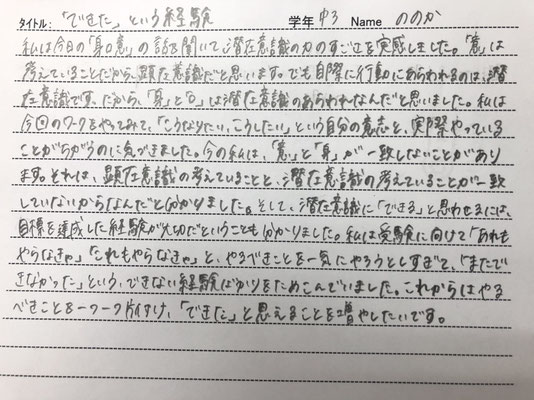 タイトル: 「できた」という経験 学年 中3 Name ののか
私は今日の「身口意」の話を聞いて、潜在意識の力のすごさを実感しました。「意」は
考えていることだから、顕在意識だと思います。でも自際に行動にあらわれるのは、潜
在意識です。だから、「身」と「口」は潜在意識のあらわれなんだと思いました。私は
今回のワークをやってみて、「こうなりたい、こうしたい」という自分の意志と、実際やっている
ことがちがうのに気づきました。今の私は、「意」と「身」が一致しないことがあり
ます。それは、顕在意識の考えていることと、潜在意識の考えていることが一致
していないからなんだと分かりました。そして、潜在意識に「できる」と思わせるには、
目標を達成した経験が大切だということも分かりました。私は受験に向けて「あれも
やらなきゃ」「これもやらなきゃ」と、やるべきことを一気にやろうとしすぎて、「まだで
きなかった」という、できない経験ばかりをためこんでいました。これからはやる
べきことを一つ一つ片付け、「できた」と思えることを増やしたいです。